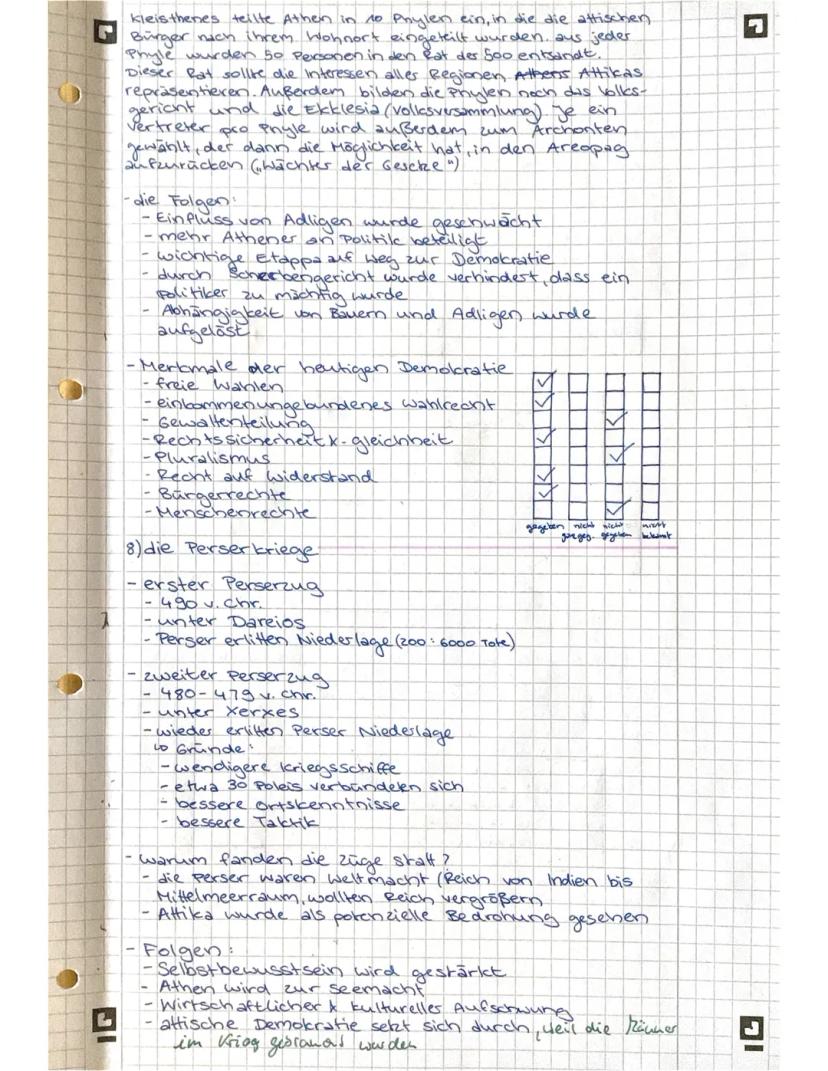 Kleisthenes teilte Athen in 10 Phylen ein, in die die attischen
Bürger nach ihrem Wohnort eingeteilt wurden. aus jeder
Phyle wurden 50 Personen in den Rat der 500 entsandt.
Dieser Rat sollte die Interessen aller Regionen Athens Attikas
repräsentieren. Außerdem bilden die Phylen noch das Volks-
gericht und die Ekklesia (Volksversammlung) Je ein
Vertreter pro Phyle wird außerdem zum Archonten
gewählt, der dann die Möglichkeit hat, in den Areopag
aufzurücken („Wächter der Gesetze“)
- die Folgen:
- Einfluss von Adligen wurde geschwächt
- mehr Athener an Politik beteiligt
- wichtige Etappe auf Weg zur Demokratie
- durch Scherbengericht wurde verhindert, dass ein
Politiker zu mächtig wurde
- Abhängigkeit von Bauern und Adligen wurde
aufgelöst
- Merkmale der heutigen Demokratie
- freie Wahlen
- einkommenungebundenes Wahlrecht
- Gewaltenteilung
- Rechtssicherheit & -gleichheit
- Pluralismus
- Recht auf Widerstand
- Bürgerrechte
- Menschenrechte
gegeben nicht nicht nicht
ganz geg. gegeben bekannt
8) die Perserkriege
- erster Perserzug
- 490 v. Chr.
- unter Dareios
- Perser erlitten Niederlage (200 : 6000 Tote)
- zweiter Perserzug
- 480 - 479 v. Chr.
- unter Xerxes
- wieder erlitten Perser Niederlage
↳ Gründe:
- wendigere Kriegsschiffe
- etwa 30 Poleis verbündeten sich
- bessere Ortskenntnisse
- bessere Taktik
- warum fanden die Züge statt?
- die Perser waren Weltmacht (Reich von Indien bis
Mittelmeerraum, wollten Reich vergrößern
- Attika wurde als potenzielle Bedrohung gesehen
- Folgen:
- Selbstbewusstsein wird gestärkt
- Athen wird zur Seemacht
- Wirtschaftlicher & kultureller Aufschwung
- attische Demokratie setzt sich durch, weil die Männer
im Krieg gebraucht wurden